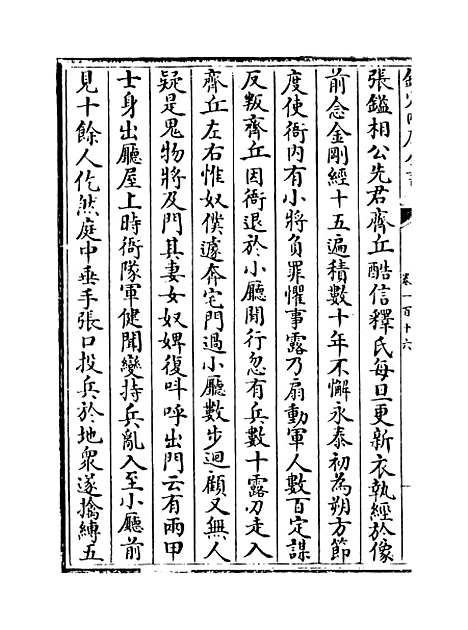 欽定四庫全書
卷一百十六
張鎰相公先君齊丘酷信釋氏每旦更新衣執經於像
前念金剛經十五遍積數十年不懈永泰初為朔方節
度使衙内有小將負罪懼事露乃扇動軍人數百定謀
反叛齊丘因衙退於小廳閒行忽有兵數十露刃走入
齊丘左右惟奴僕遽奔宅門過小廳數步迴顧又無人
疑是鬼物將及門其妻女奴婢復呌呼出門云有兩甲
士身出廳屋上時衙隊軍健聞變持兵亂入至小廳前
見十餘人仡然庭中垂手張口投兵於地衆遂擒縛五